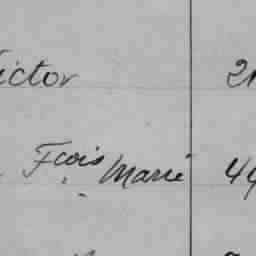 ictor
Fcois Marie 44